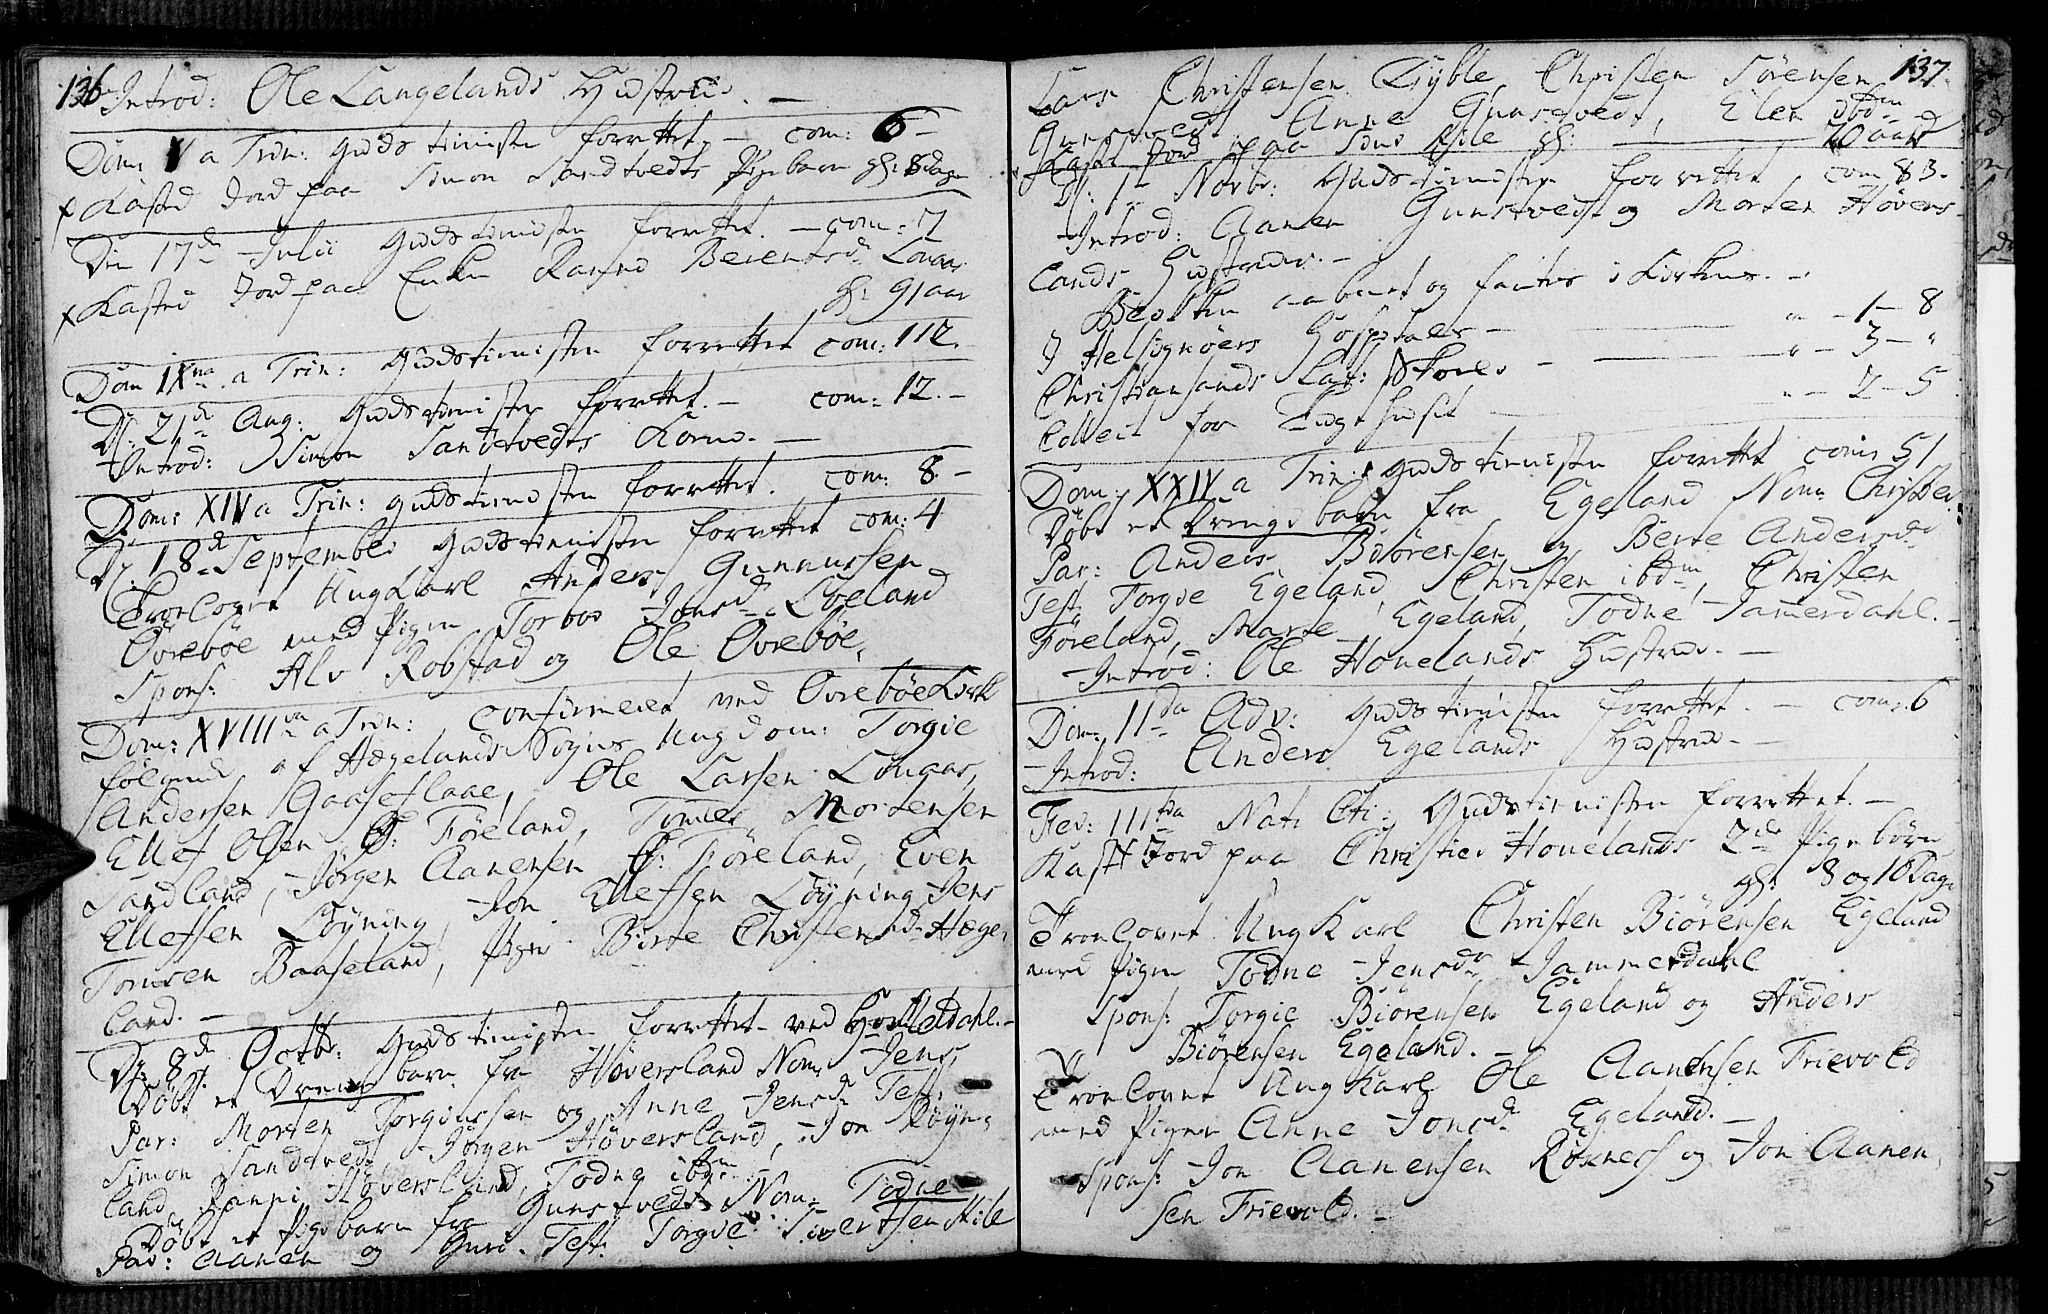 136
Introd: Ole Langelands Hustrue. —
Dom: V a Trin: Gudstienisten forrettet. — com: 6 —
x Kasted Jord paa Simon Sandtvedts Pigebarn gl: 8 dage
Den 17de Julii Gudstienisten forrettet. — com: 7
x Kasted Jord paa Enken Beientsd: Lonaas
gl: 91 aar
Dom IXna a Trin: Gudstienisten forrettet com: 112.
D: 21de Aug: Gudstienisten forrettet. — com: 12. —
Introd: Simon Sandtvedts Kone. —
Dom: XIV a Trin: Gudstienisten forrettet. com: 8. —
D: 18de Septembr: Gudstienisten forrettet com: 4
Trolovet Ungkarl Anders Gunnufsen
Øvrebøe med Pigen Torboe Jonsd: Løeland
Spons: Alv Robstad og Ole Øvrebøe,
Dom: XVIIIva a Trin: Confirmeret ved Øvrebøe Kirke
følgende af Hægelands Sogns Ungdom: Torgie
Andersen Gaaseflaae, Ole Larsen Lonaas,
Ellef Olsen Ø: Føreland, Tomes Mortensen
Sandland, Jørgen Aanensen Ø: Føreland, Even
Ellefsen Løyning, Jon Ellefsen Løyning Jens
Tomsen Baaseland, Piger: Birte Christensd: Hæge-
land. —
D: 8de Octbr: Gudstienisten forrettet ved Homledahl. —
Døbt et Drenge barn fra Høversland Nom: Jens,
Par: Morten Torgiussen og Anne Jensd: Test:
Simon Sandtvedt Jørgen Høversland, Jon Røyne-
land, Høversland, Todne ibdm
Døbt et Pigebarn fra Gunstvedt Nom: Todne
Par: Aanen og Guri. Test: Torgie Sivertsen Kile
137
Lars Christensen Kyble, Christen Sørensen
Gunstvedt Anne Gunstvedt, Elen ibdm
Kastet Jord paa Kile gl: — aar
D: 1te Novbr: Gudstienisten forrettet com 83.
Introd: Aanen Gunstvedt og Morten Høvers-
lands Hustruer. —
Bøssen aabnet og fantes i Kirken. —
I Helsignørs Hospitaler — " — 1 — 8
Christiansands Lat: Skoele — " — 3 — "
Collect for Tugthuset " — 2 — 5
Dom: XXIV a Trin: Gudstienisten forrettet com: 51
Døbt et Drenge barn fra Egeland Nom:
Par: Anders Biørensen og Berte Andersd:
Test: Torgie Egeland, Christen ibdm, Christen
Føreland, Marte Egeland, Todne Jammerdahl. —
Introd: Ole Houelands Hustrue. —
Dom: IIda Adv: Gudstienisten forrettet. — com: 6
Introd: Anders Egelands Hustrue. —
Fer: IIItia Nat: Cti: Gudstienisten forrettet. —
Kastet Jord paa Christies Houelands 2de Pigebørn
gl: 8 og 10 Dage
Trolovet Ungkarl Christen Biørensen Egeland
med Pigen Todne Jensdr Jammerdahl
Spons: Torgie Biørensen Egeland og Anders
Biørensen Egeland. —
Trolovet Ungkarl Ole Aanensen Trievold
med Pigen Anne Jonsd: Egeland. —
Spons: Jon Aanensen Røsnes og Jon Aanen-
sen Trievold. —